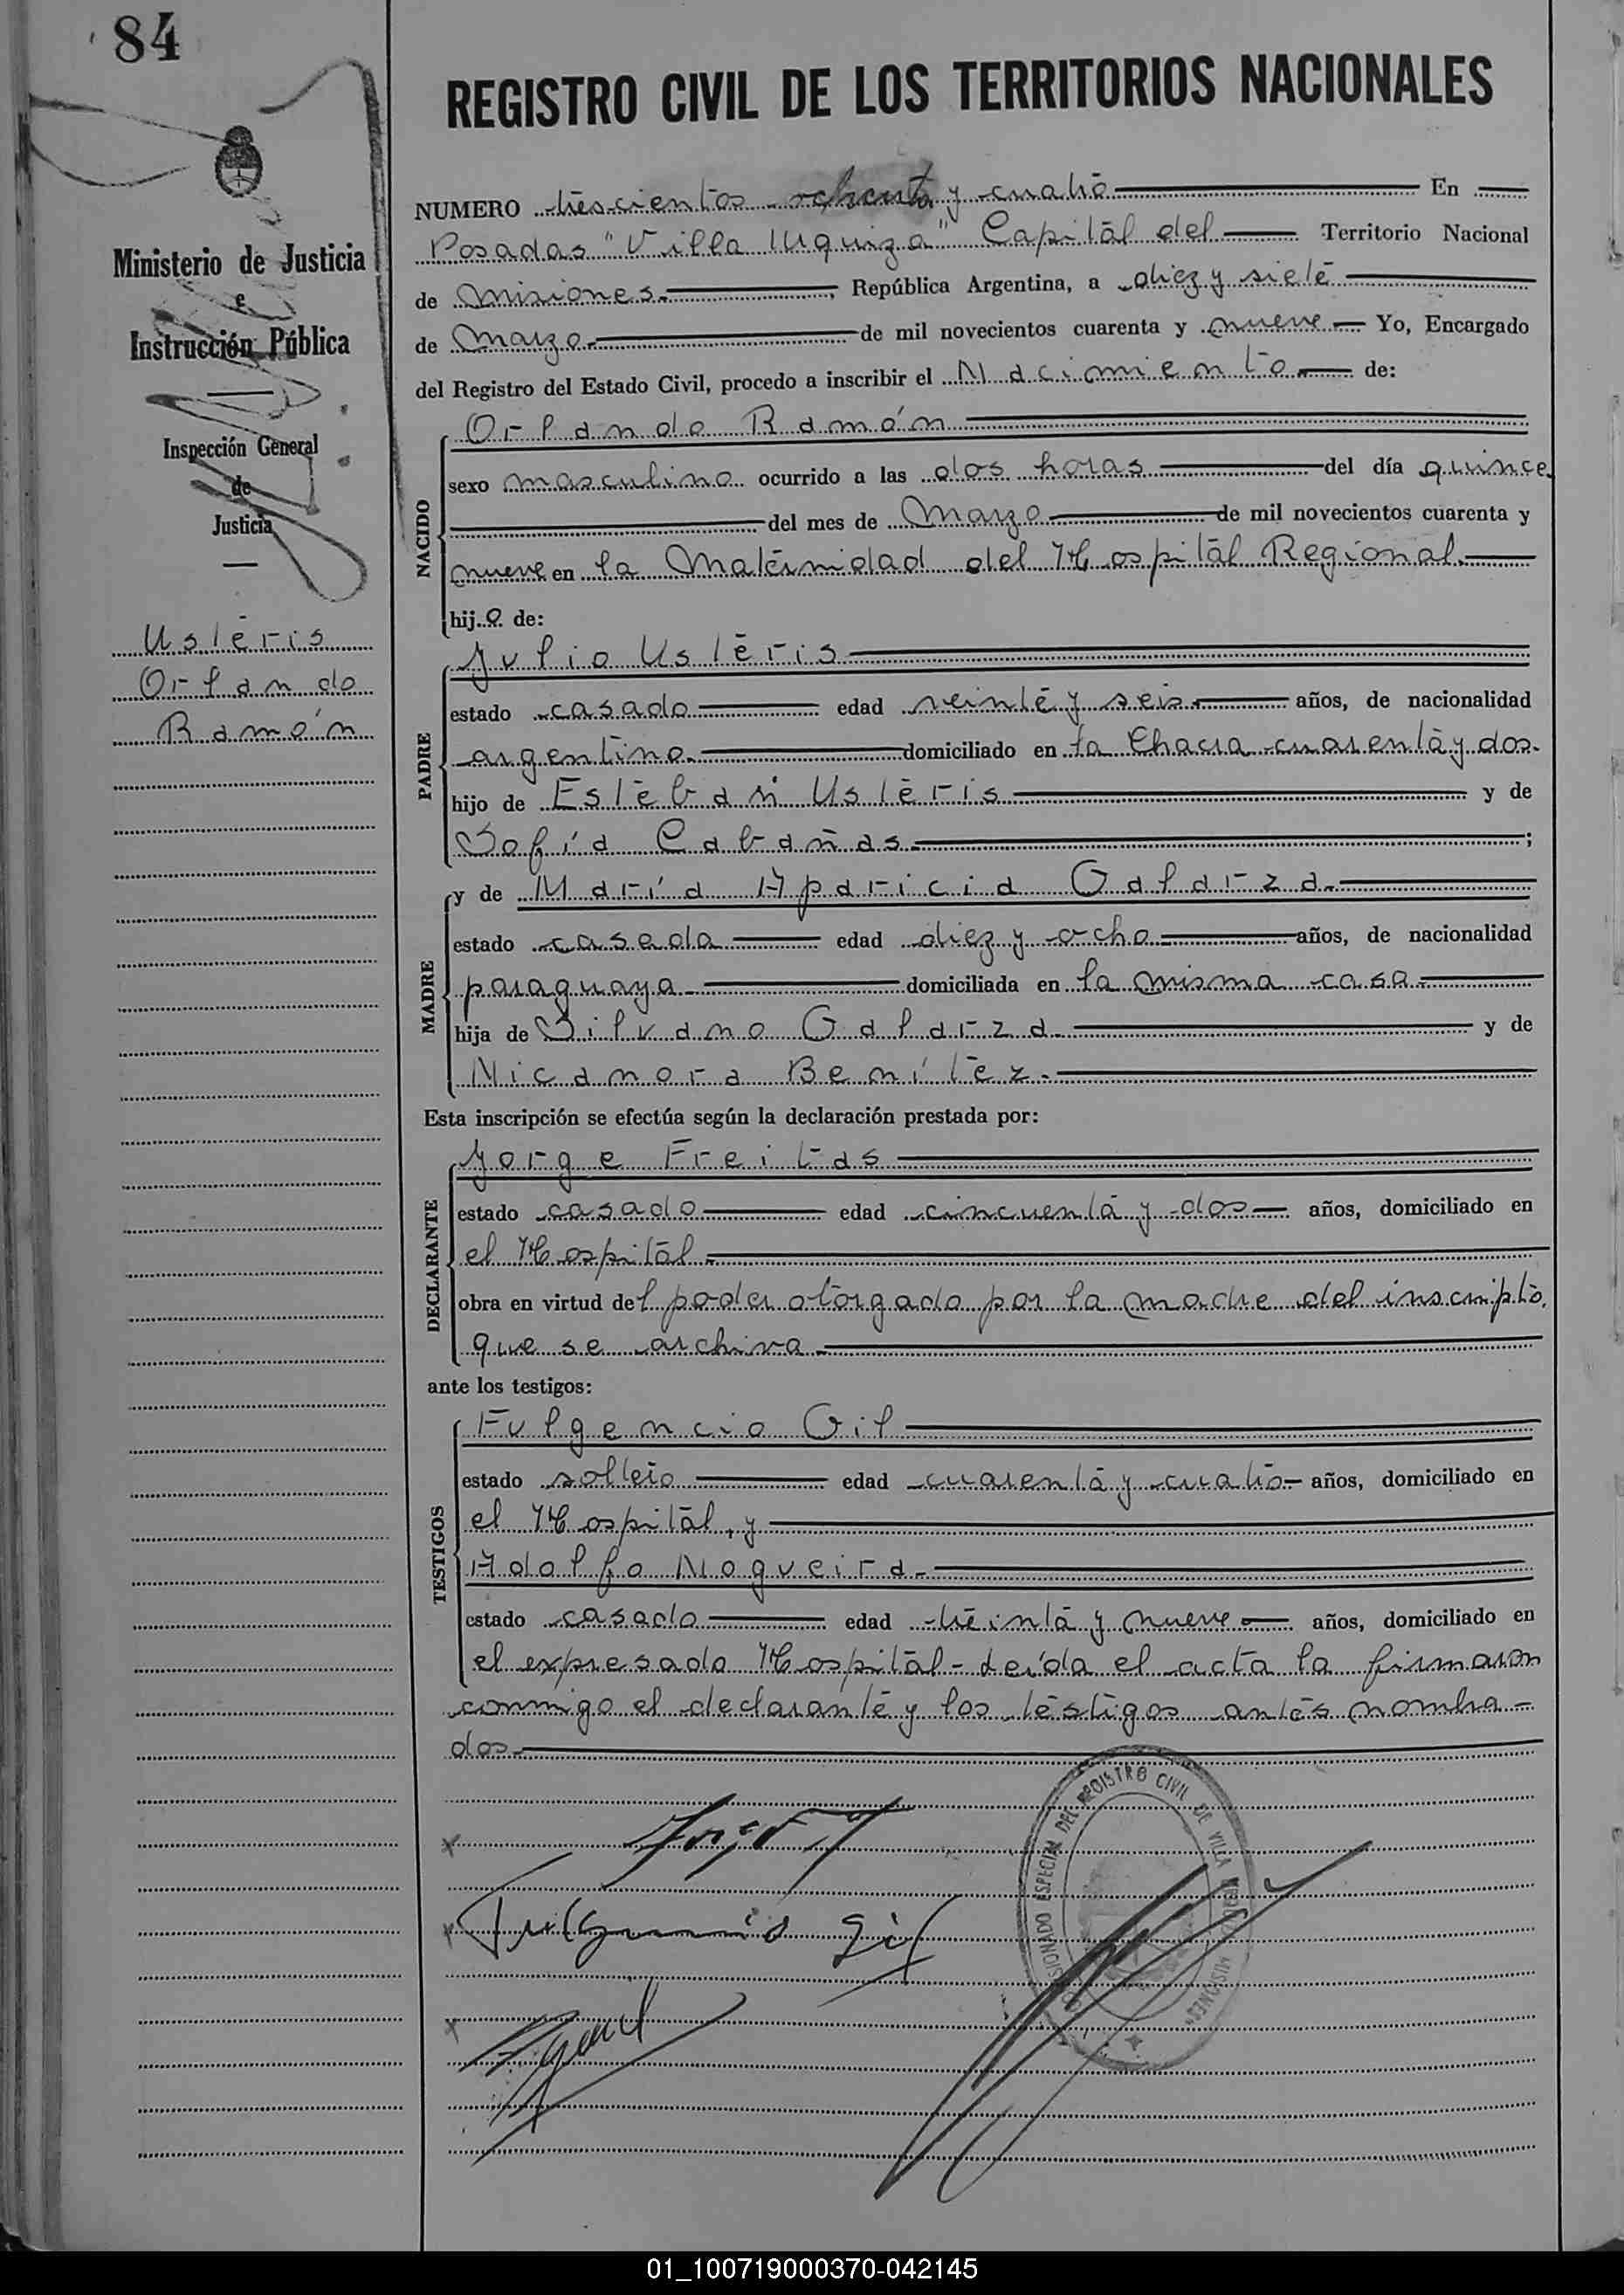 84
REGISTRO CIVIL DE LOS TERRITORIOS NACIONALES
Ministerio de Justicia
e
Instrucción Pública
Inspección General
de
Justicia
Usteris
Orlando
Ramón
NUMERO trescientos ochenta y cuatro En
Posadas "Villa Urquiza" Capital del Territorio Nacional
de Misiones. República Argentina, a diez y siete
de Marzo de mil novecientos cuarenta y nueve Yo, Encargado
del Registro del Estado Civil, procedo a inscribir el Nacimiento de:
NACIDO
Orlando Ramón
sexo masculino ocurrido a las dos horas del día quince
del mes de Marzo de mil novecientos cuarenta y
nueve en la Maternidad del Hospital Regional.
hijo de:
PADRE
Julio Usteris
estado casado edad veinte y seis años, de nacionalidad
argentino. domiciliado en la Chacra cuarenta y dos.
hijo de Estéban Usteris y de
Sofía Cabañas. ;
MADRE
y de María Aparicia Galarza.
estado casada edad diez y ocho años, de nacionalidad
paraguaya domiciliada en la misma casa
hija de Silvano Galarza y de
Nicanora Benítez.
Esta inscripción se efectúa según la declaración prestada por:
DECLARANTE
Jorge Freitas
estado casado edad cincuenta y dos años, domiciliado en
el Hospital
obra en virtud del poder otorgado por la madre del inscripto,
que se archiva
ante los testigos:
TESTIGOS
Fulgencio Gil
estado soltero edad cuarenta y cuatro años, domiciliado en
el Hospital, y
Adolfo Nogueira.
estado casado edad treinta y nueve años, domiciliado en
el expresado Hospital - Leída el acta la firmaron
conmigo el declarante y los testigos antes nombra-
dos.
COMISIONADO ESPECIAL DEL REGISTRO CIVIL DE VILLA URQUIZA MISIONES
Fulgencio Gil
01_100719000370-042145